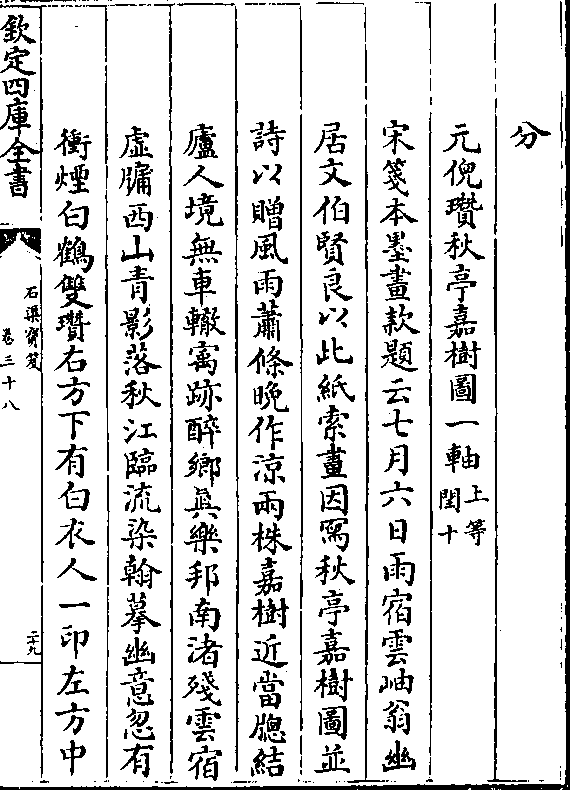 分
元倪瓚秋亭嘉樹圖一軸上等閏十
宋箋本墨畫款題云七月六日雨宿雲岫翁幽
居文伯賢良以此紙索畫因寫秋亭嘉樹圖並
詩以贈風雨蕭條晚作涼兩株嘉樹近當牕結
廬人境無車轍寓跡醉鄉眞樂邦南渚殘雲宿
虛牖西山青影落秋江臨流染翰摹幽意忽有
衝煙白鶴雙瓚右方下有白衣人一印左方中
欽定四庫全書
石渠寶笈
卷三十八
二十九